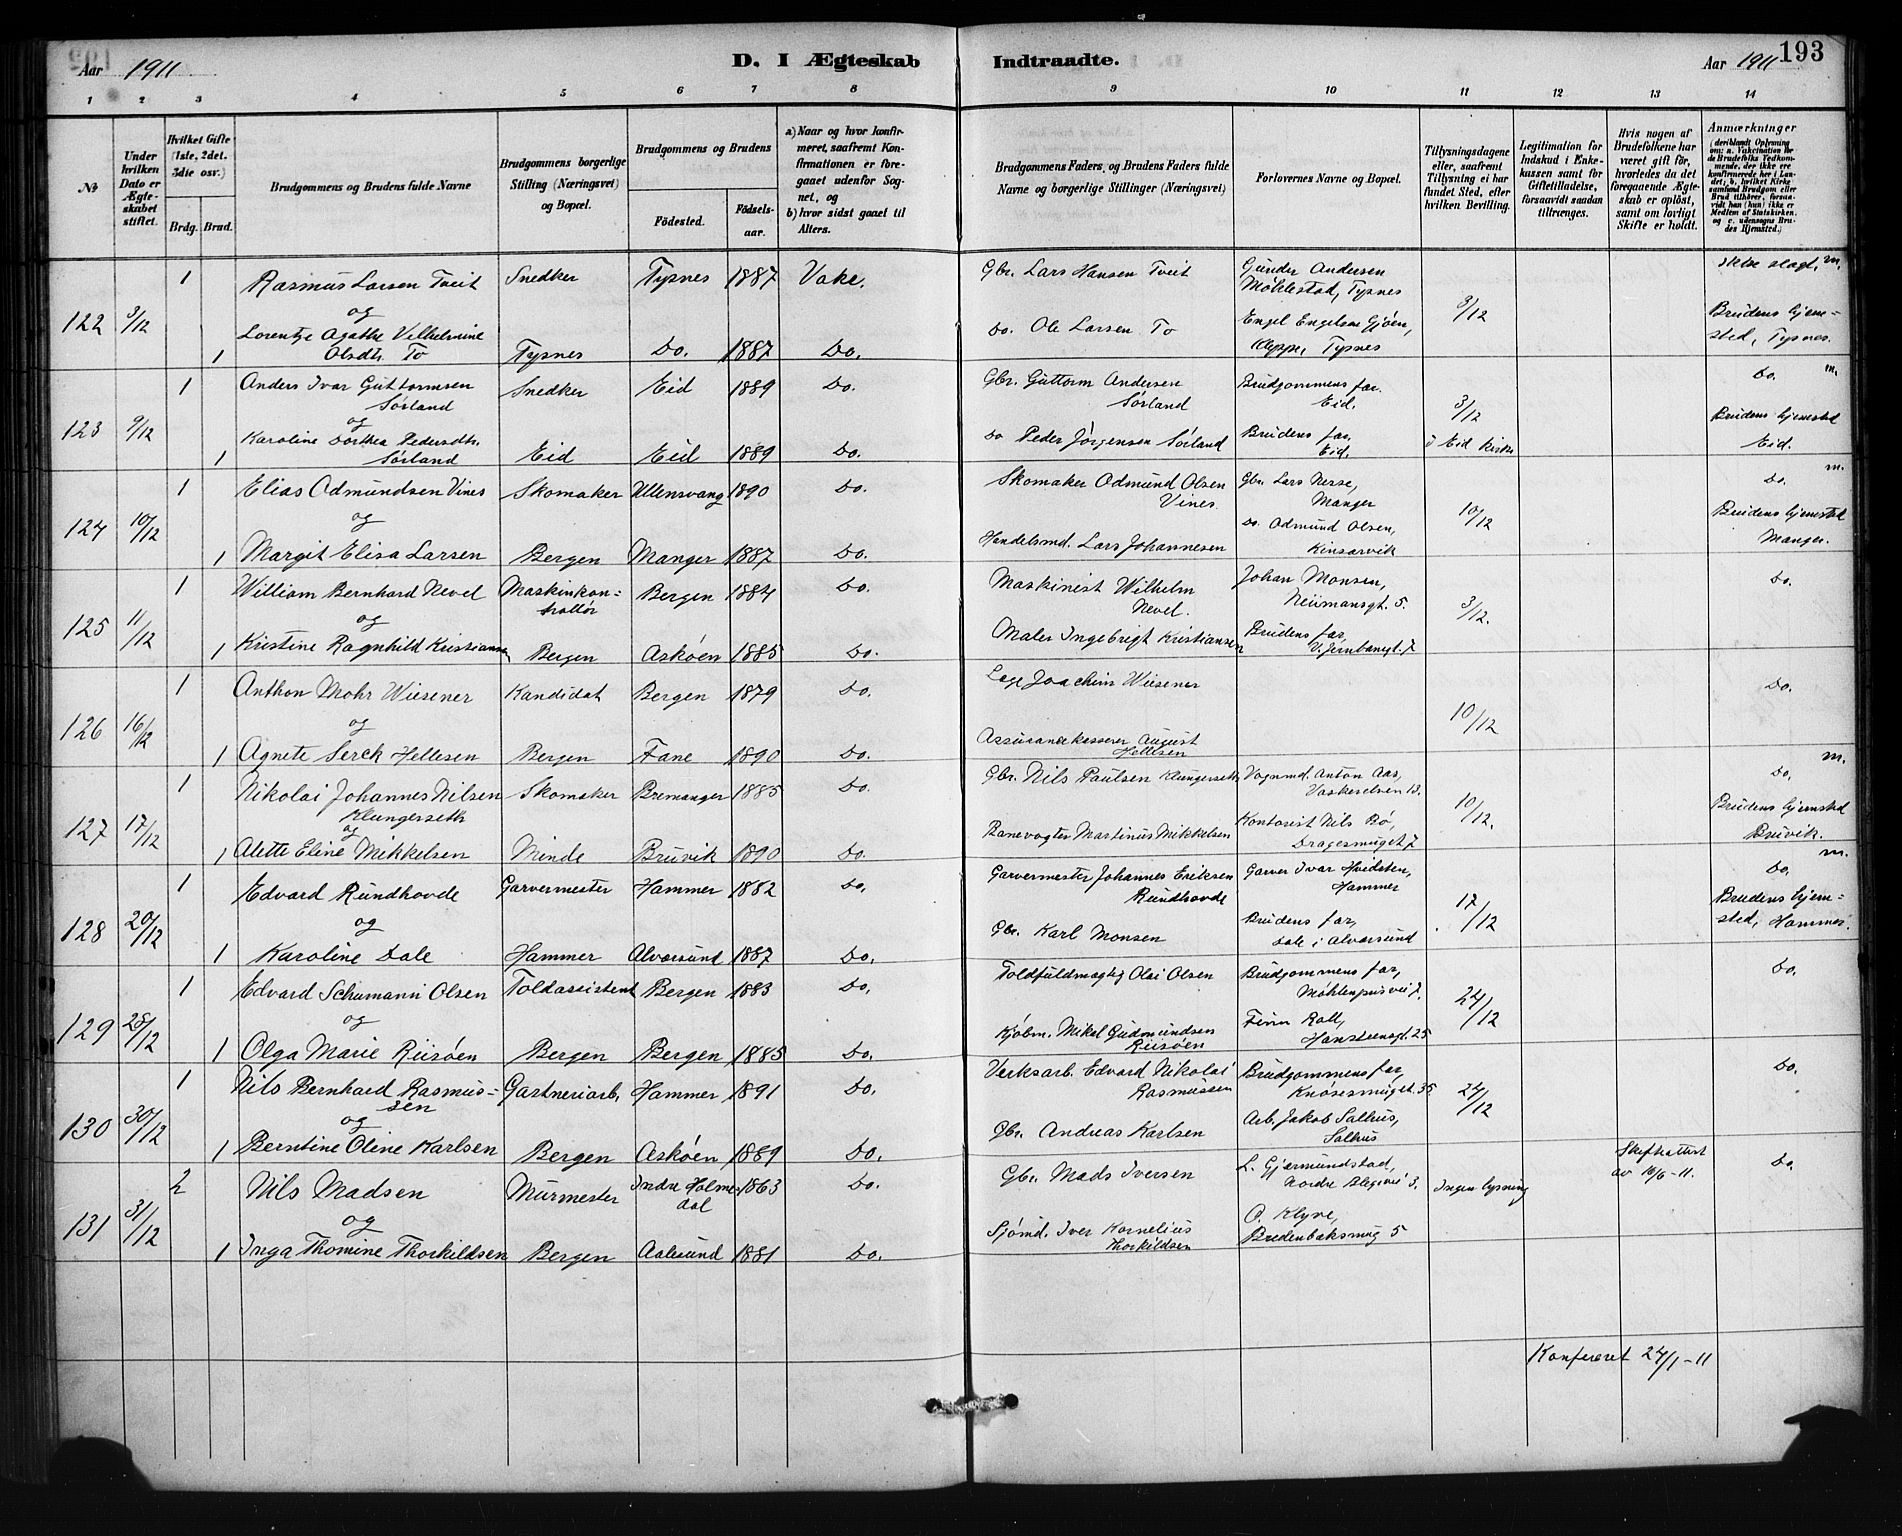 Aar 1911 D. I Ægteskab Indtraadte. Aar 1911 193
1 2 3 4 5 6 7 8 9 10 11 12 13 14
№
Under hvilken Dato er Ægteskabet stiftet.
Hvilket Gifte (1ste, 2det, 3die osv.)
Brdg. Brud.
Brudgommens og Brudens fulde Navne
Brudgommens borgerlige Stilling (Næringsvei) og Bopæl.
Brudgommens og Brudens
Fødested. Fødsels-aar.
a) Naar og hvor konfirmeret, saafremt Konfirmationen er foregaaet udenfor Sognet, og
b) hvor sidst gaaet til Alters.
Brudgommens Faders, og Brudens Faders fulde Navne og borgerlige Stillinger (Næringsvei)
Forlovernes Navne og Bopæl.
Tillysningsdagene eller, saafremt Tillysning ei har fundet Sted, efter hvilken Bevilling.
Legitimation for Indskud i Enkekassen samt for Giftetilladelse, forsaavidt saadan tiltrænges.
Hvis nogen af Brudefolkene har været gift før, hvorledes da det foregaaende Ægteskab er opløst, samt om lovligt Skifte er holdt.
Anmærkninger (deriblandt Oplysning om: a. Vaccination for de Brudefolks Vedkommende, der ikke ere konfirmerede her i Landet; b. hvilket Kirkesamfund Brudgom eller Brud tilhører, forsaavidt han (hun) ikke er Medlem af Statskirken. og c. udensogns Brudes Hjemsted.)
1 Rasmus Larsen Tveit Snedker Tysnes 1887 Vake. Gbr. Lars Hansen Tveit Gunder Andersen Møhlestad, Tysnes Ikke slagt. m.
122 3/12 og 3/12
1 Lorentze Agathe Vilhelmine Olsdtr. To Tysnes Do. 1887 Do. Do. Ole Larsen To Engel Engelsen Gjøen, Kleppe, Tysnes Brudens hjemsted, Tysnes.
1 Anders Ivar Guttormsen Sørland Snedker Eid 1889 Do. Gbr. Guttorm Andersen Sørland Brudgommens far. Eid. Do. m.
123 9/12 og 3/12 i Eid kirke
1 Karoline Dorthea Pedersdtr. Sørland Eid Eid 1889 Do. Do Peder Jørgensen Sørland Brudens far, Eid. Brudens hjemsted Eid.
1 Elias Odmundsen Vines Skomaker Ullensvang 1890 Do. Skomaker Odmund Olsen Vines. Gbr. Lars Nesse, Manger Do. m.
124 10/12 og 10/12
1 Margit Elisa Larsen Bergen Manger 1887 Do. Handelsmd. Lars Johannesen Do. Odmund Olsen, Kinsarvik Brudens hjemsted Manger.
1 William Bernhard Nevel Maskinkontrollør Bergen 1884 Do. Maskinist Wilhelm Nevel. Johan Monsen, Neumansgt. 5. Do.
125 11/12 og 3/12.
1 Kristine Ragnhild Kristiansen Bergen Askøen 1885 Do. Maler Ingebrigt Kristiansen Brudens far, V. Jernbanegt. 7
1 Anthon Mohr Wiesener Kandidat Bergen 1879 Do. Lege Joachim Wiesener Do.
126 16/12 og 10/12
1 Agnete Serck Hellesen Bergen Fane 1890 Do. Assuransekasserer August Hellesen
1 Nikolai Johannes Nilsen Klungerseth Skomaker Bremanger 1885 Do. Gbr. Nils Paulsen Klungerseth Vognmd. Anton Aas, Vaskerelven 13. Do. m.
127 17/12 og 10/12.
1 Alette Eline Mikkelsen Minde Bruvik 1890 Do. Banevogter Martinus Mikkelsen Kontorist Nils Bø, Dragesmuget 7 Brudens hjemsted Bruvik.
1 Edvard Rundhovde Garvermester Hammer 1882 Do. Garvermester Johannes Eriksen Rundhovde Garver Ivar Hvidsten, Hammer Do. m.
128 20/12 og 17/12
1 Karoline Dale Hammer Alversund 1887 Do. Gbr. Karl Monsen Brudens far, Dale i Alversund Brudens hjemsted, Hammer.
1 Edvard Schumann Olsen Toldassistent Bergen 1883 Do. Toldfuldmægtig Olai Olsen Brudgommens far, Møhlenprisvei 7. Do.
129 28/12 og 24/12
1 Olga Marie Riisøen Bergen Bergen 1885 Do. Kjøbm. Mikal Gudmundsen Riisøen Finn Roll, Hansteensgt. 25
1 Nils Bernhard Rasmussen Gartneriarb. Hammer 1891 Do. Verksarb. Edvard Nikolai Rasmussen Brudgommens far, Knøsesmuget 35 Do.
130 30/12 og 24/12
1 Berntine Oline Karlsen Bergen Askøen 1889 Do. Gbr. Andreas Karlsen Arb. Jakob Salhus, Salhus
2 Nils Madsen Murmester Indre Holmedal 1863 Do. Gbr. Mads Iversen L. Gjermundstad, Nordre Blegevei 3. Ingen lysning Skifteattest av 10/6-11. Do.
131 31/12 og
1 Inga Thomine Thorkildsen Bergen Aalesund 1881 Do. Sjømd. Iver Kornelius Thorkildsen O. Klyve, Bredenbaksmug 5
Konfereret 24/1-11